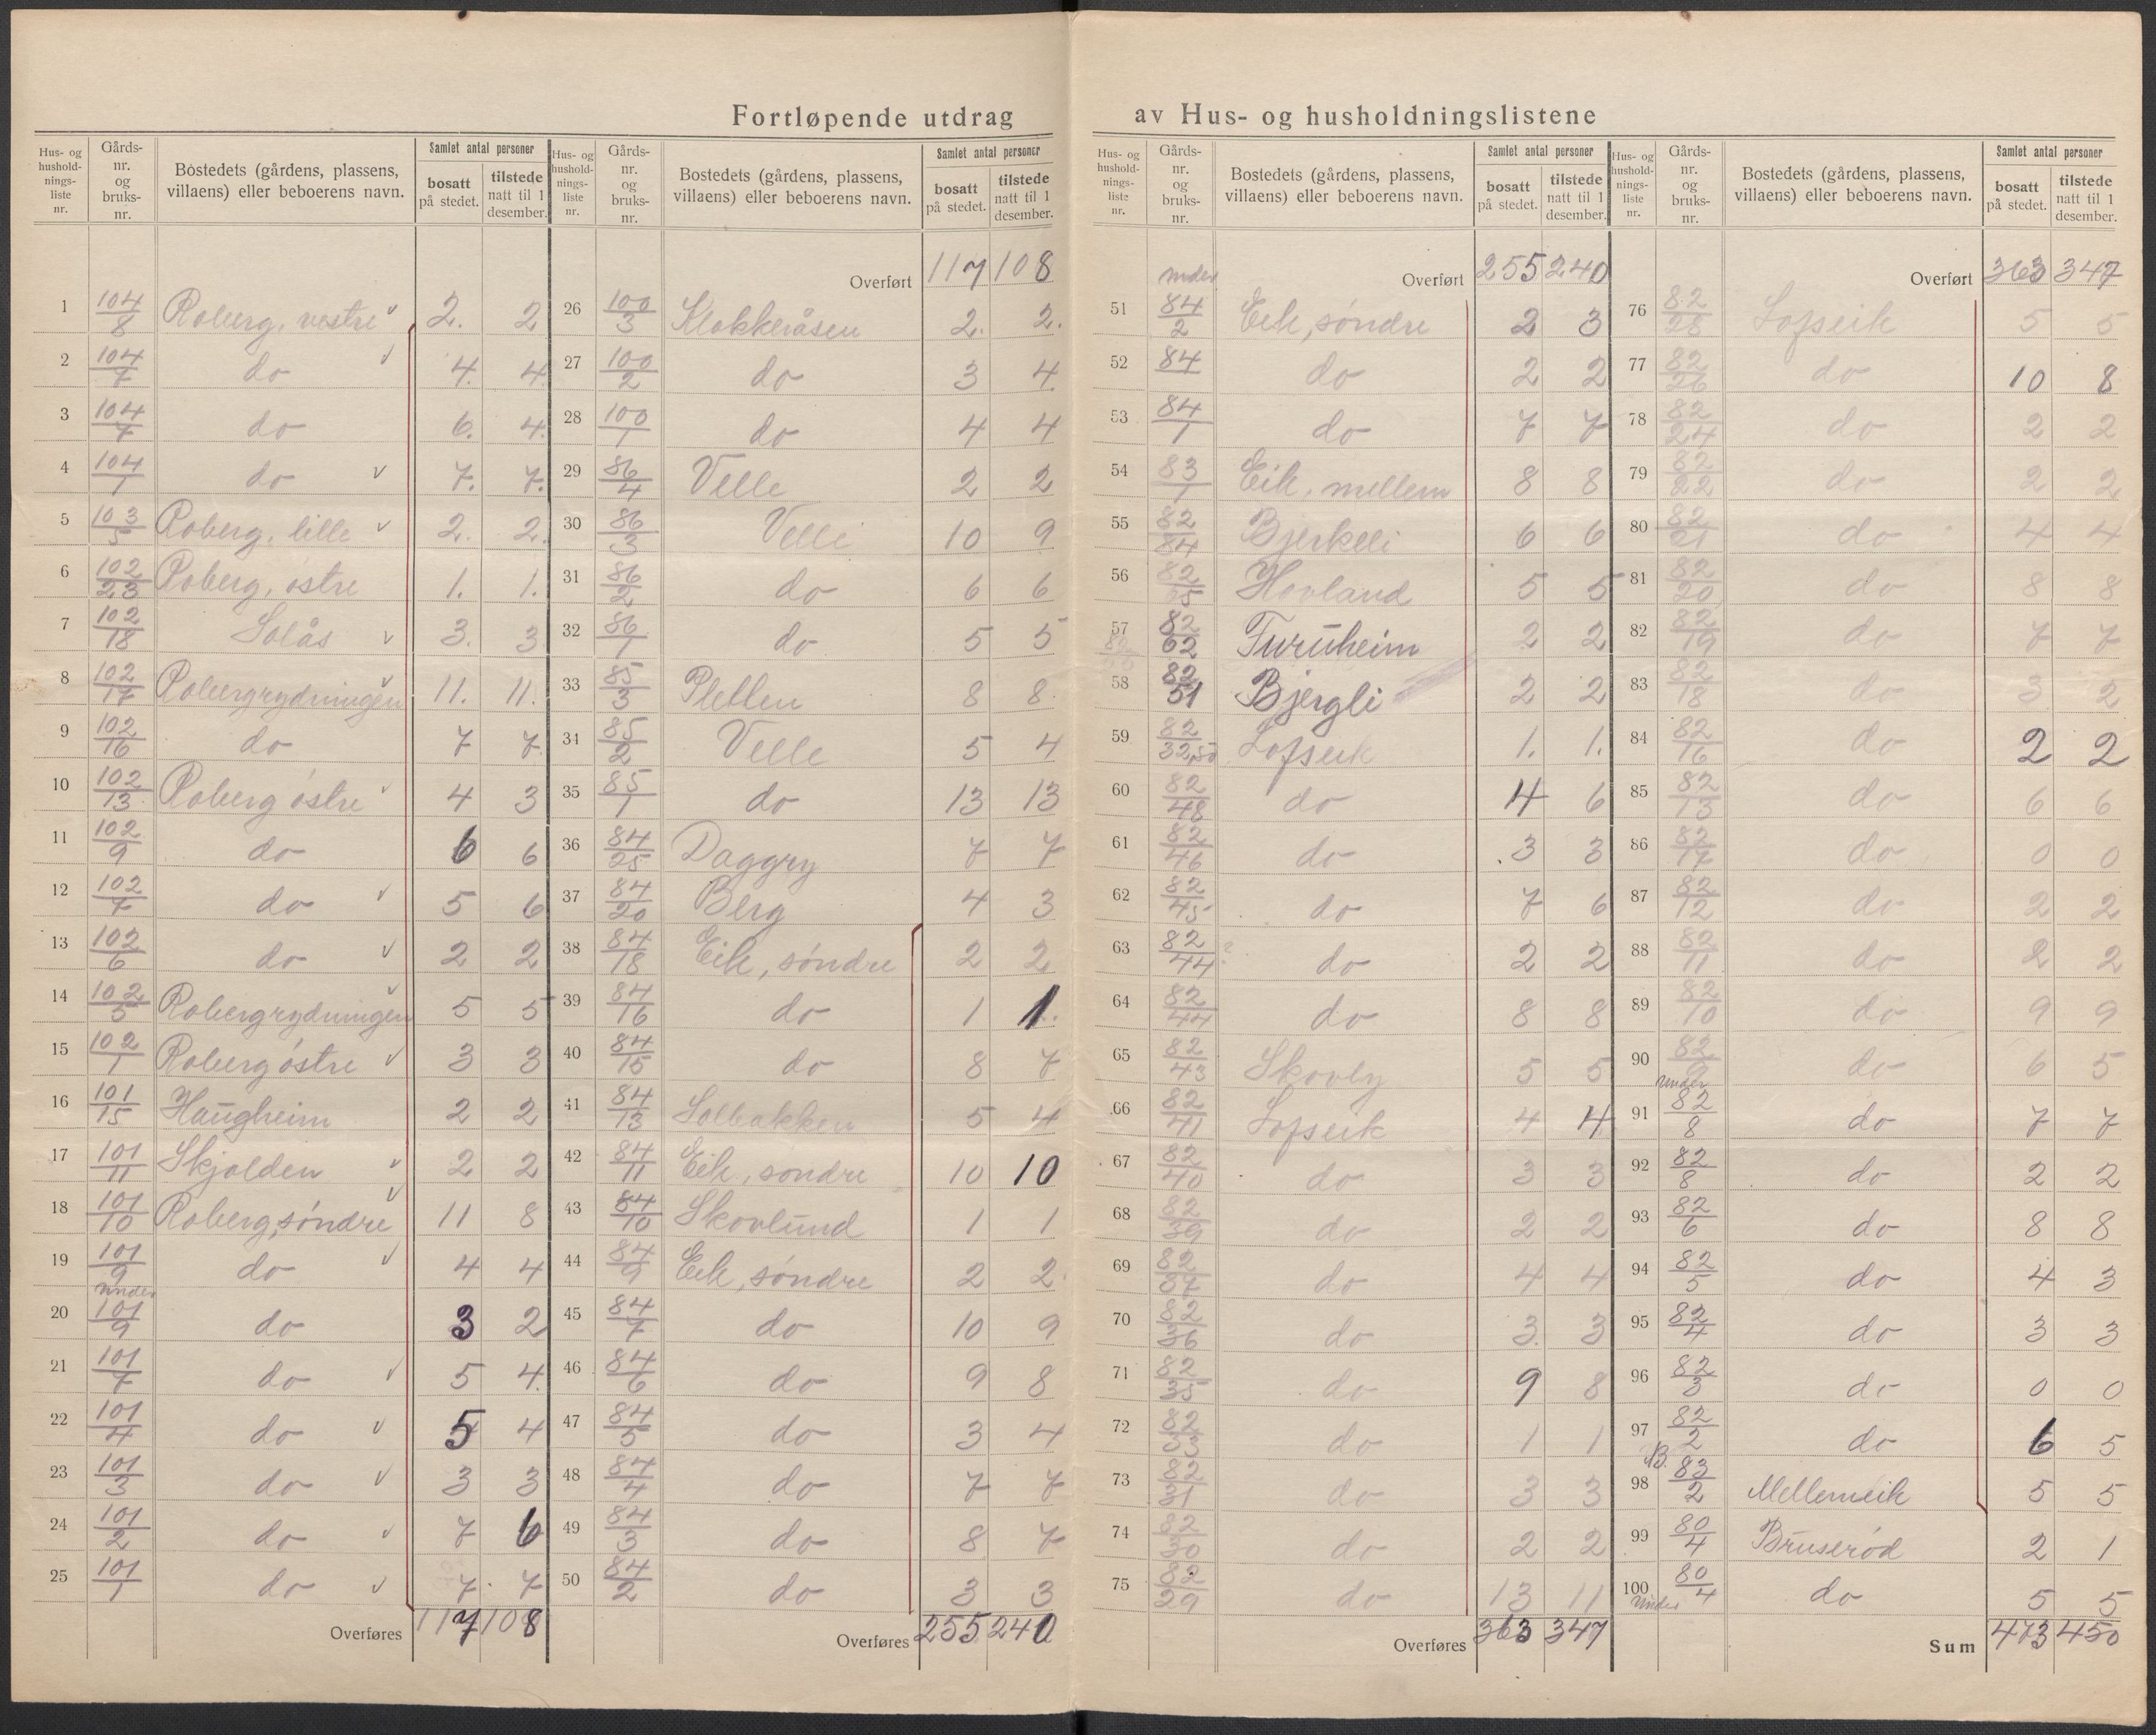 Fortløpende utdrag av Hus- og husholdningslistene
Hus- og husholdnings-liste nr. | Gårds-nr. og bruks-nr. | Bostedets (gårdens, plassens, villaens) eller beboerens navn. | Samlet antal personer bosatt på stedet. | tilstede natt til 1 desember.
1 104/8 Roberg, vestre v 2. 2
2 104/7 do v 4. 4
3 104/7 do 6. 4.
4 104/1 do v 7. 7.
5 103/5 Roberg, lille v 2. 2.
6 102/23 Roberg, østre 1. 1.
7 102/18 Solås v 3. 3
8 102/17 Robergrydningen v 11. 11.
9 102/16 do 7 7
10 102/13 Roberg østre v 4 3
11 102/9 do 6 6
12 102/7 do v 5 6
13 102/6 do v 2 2
14 102/5 Robergrydningen v 5 5
15 102/1 Roberg østre v 3 3
16 101/15 Haugheim 2 2
17 101/11 Skjolden v 2 2
18 101/10 Roberg, søndre v 11 8
19 101/9 do v 4 4
20 under 101/9 do 3 2
21 101/7 do v 5 4.
22 101/4 do v 5 4
23 101/3 do v 3 3
24 101/2 do v 7 6
25 101/1 do v 7. 7
Overføres 117 108
Hus- og husholdnings-liste nr. | Gårds-nr. og bruks-nr. | Bostedets (gårdens, plassens, villaens) eller beboerens navn. | Samlet antal personer bosatt på stedet. | tilstede natt til 1 desember.
Overført 117 108
26 100/3 Klokkeråsen 2. 2.
27 100/2 do 3 4.
28 100/1 do 4 4
29 86/4 Velle 2 2
30 86/3 Velle 10 9
31 86/2 do 6 6
32 86/1 do 5 5
33 85/3 Pletten 8 8
34 85/2 Velle 5 4
35 85/1 do 13 13
36 84/25 Daggry 7 7
37 84/20 Berg 4 3
38 84/18 Eik, søndre 2 2
39 84/16 do 1 1.
40 84/15 do 8 7
41 84/13 Solbakken 5 4
42 84/11 Eik, søndre 10 10
43 84/10 Skovlund 1 1
44 84/9 Eik, søndre 2 2
45 84/7 do 10 9
46 84/6 do 9 8
47 84/5 do 3 4
48 84/4 do 7 7
49 84/3 do 8 7
50 84/2 do 3 3
Overføres 255 240
Hus- og husholdnings-liste nr. | Gårds-nr. og bruks-nr. | Bostedets (gårdens, plassens, villaens) eller beboerens navn. | Samlet antal personer bosatt på stedet. | tilstede natt til 1 desember.
Overført 255 240
51 under 84/2 Eik, søndre 2 3
52 84 do 2 2
53 84/1 do 7 7
54 83/1 Eik, mellem 8 8
55 82/84 Bjerkeli 6 6
56 82/65 Hovland 5 5
57 82/62 Furuheim 2 2
58 82/51 Bjergli 2 2
59 82/32,50 Lofseik 1. 1.
60 82/48 do 4 6
61 82/46 do 3 3
62 82/45 do 7 6
63 82/44 ? do 2 2
64 82/44 do 8 8
65 82/43 Skovly 5 5
66 82/41 Lofseik 4 4
67 82/40 do 3 3
68 82/39 do 2 2
69 82/37 do 4 4
70 82/36 do 3. 3
71 82/35 do 9 8
72 82/33 do 1 1
73 82/31 do 3 3
74 82/30 do 2 2
75 82/29 do 13 11
Overføres 363 347
Hus- og husholdnings-liste nr. | Gårds-nr. og bruks-nr. | Bostedets (gårdens, plassens, villaens) eller beboerens navn. | Samlet antal personer bosatt på stedet. | tilstede natt til 1 desember.
Overført 363 347
76 82/28 Lofseik 5 5
77 82/26 do 10 8
78 82/24 do 2 2
79 82/22 do 2 2
80 82/21 do 4 4
81 82/20 do 8 8
82 82/19 do 7 7
83 82/18 do 3 2
84 82/16 do 2 2
85 82/13 do 6 6
86 82/17 do 0 0
87 82/12 do 2 2
88 82/11 do 2 2
89 82/10 do 9 9
90 82/9 do 6 5
91 under 82/8 do 7 7
92 82/8 do 2 2
93 82/6 do 8 8
94 82/5 do 4 3
95 82/4 do 3 3
96 82/3 do 0 0
97 82/2 do 6 5
98 B. 83/2 Mellemeik 5 5
99 80/4 Bruserød 2 1
100 under 80/4 do 5 5
Sum 473 450